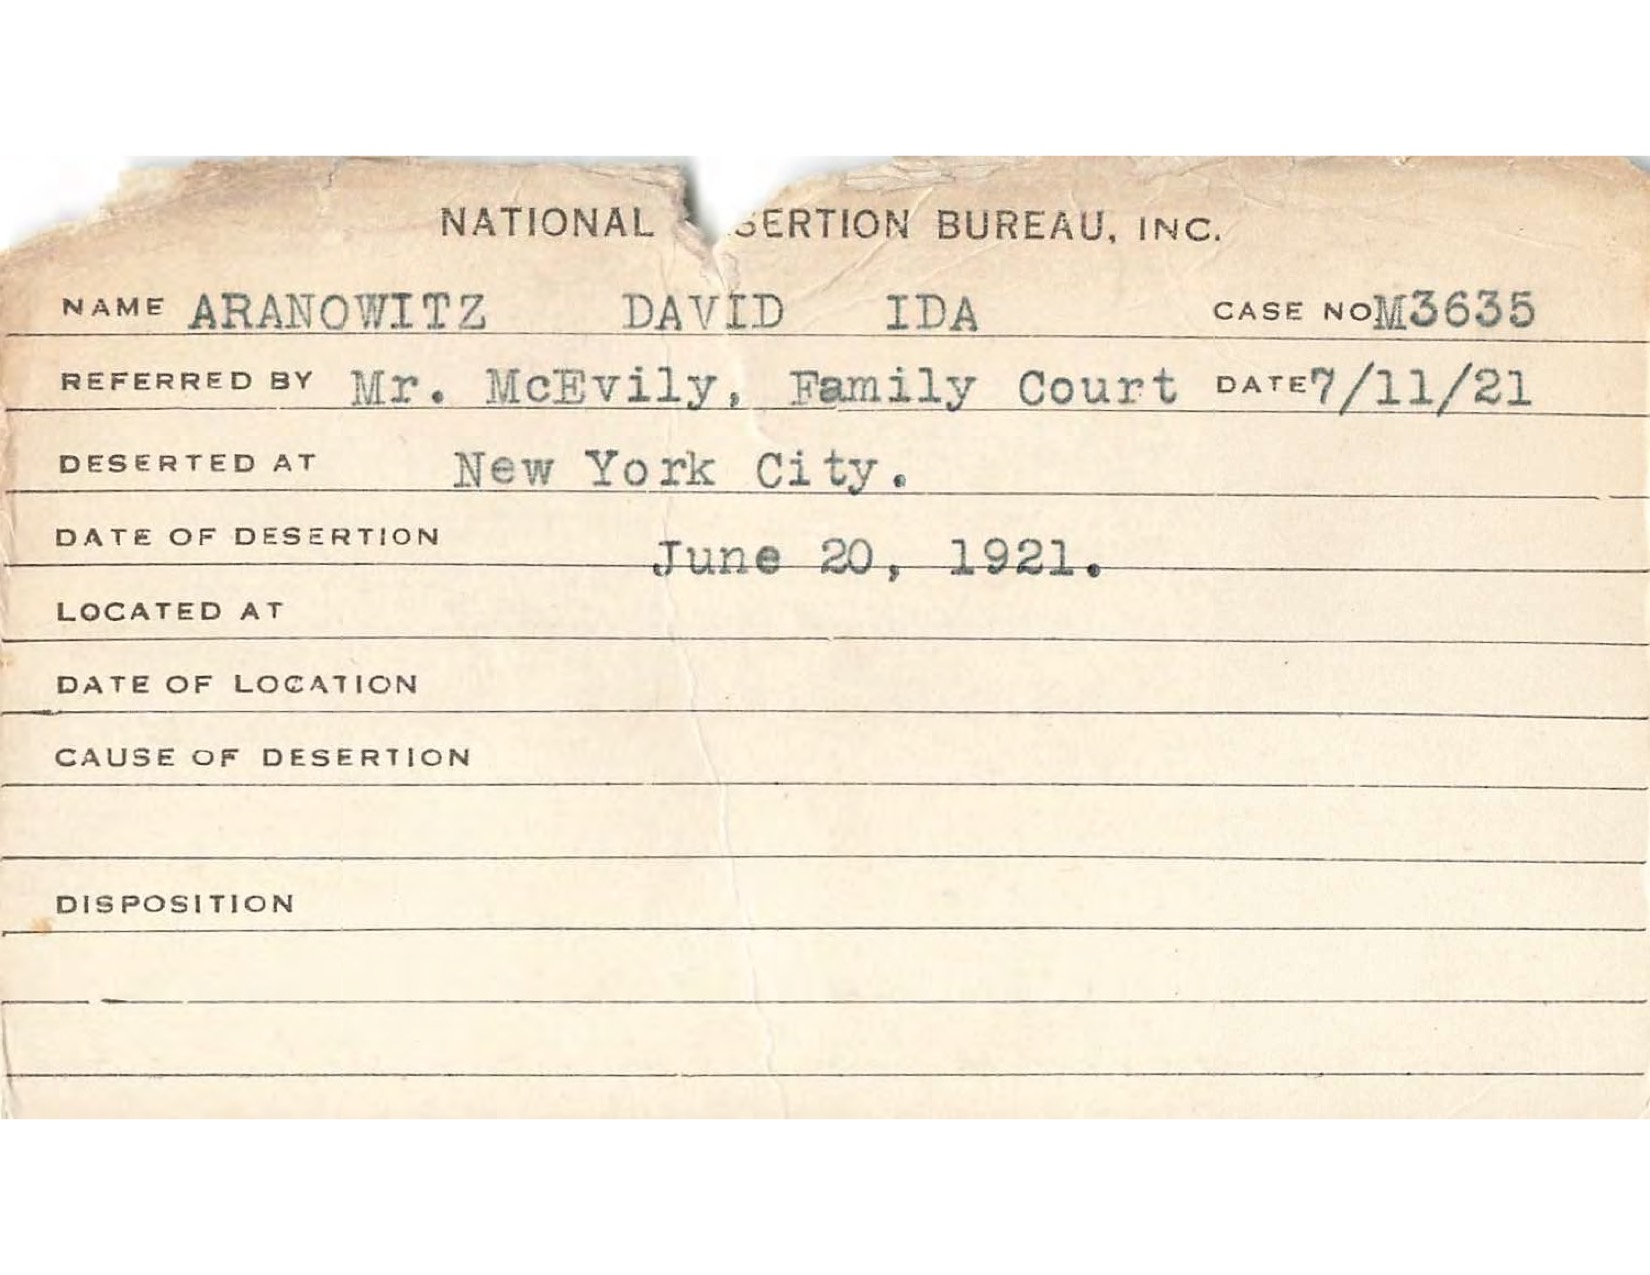 NATIONAL SERTION BUREAU, INC.
NAME ARANOWITZ DAVID IDA CASE NO M3635
REFERRED BY Mr. McEvily, Family Court DATE 7/11/21
DESERTED AT New York City.
DATE OF DESERTION June 20, 1921.
LOCATED AT
DATE OF LOCATION
CAUSE OF DESERTION
DISPOSITION